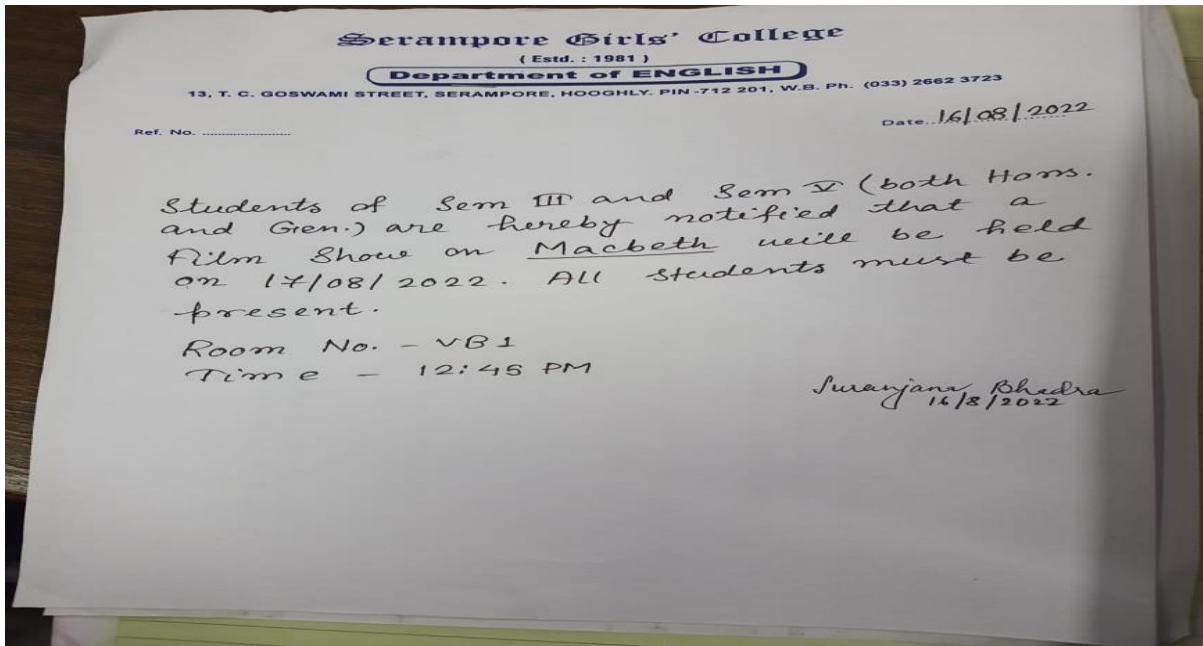 Serampore Girls' College
( Estd. : 1981 )
Department of ENGLISH
13, T. C. GOSWAMI STREET, SERAMPORE, HOOGHLY. PIN -712 201, W.B. Ph. (033) 2662 3723
Ref. No. ........................
Date..16/08/2022
Students of Sem III and Sem V (both Hons.
and Gen.) are hereby notified that a
Film Show on Macbeth will be held
on 17/08/2022. All students must be
present.
Room No. - VB1
Time - 12:45 PM
Suranjana Bhadra
16/8/2022